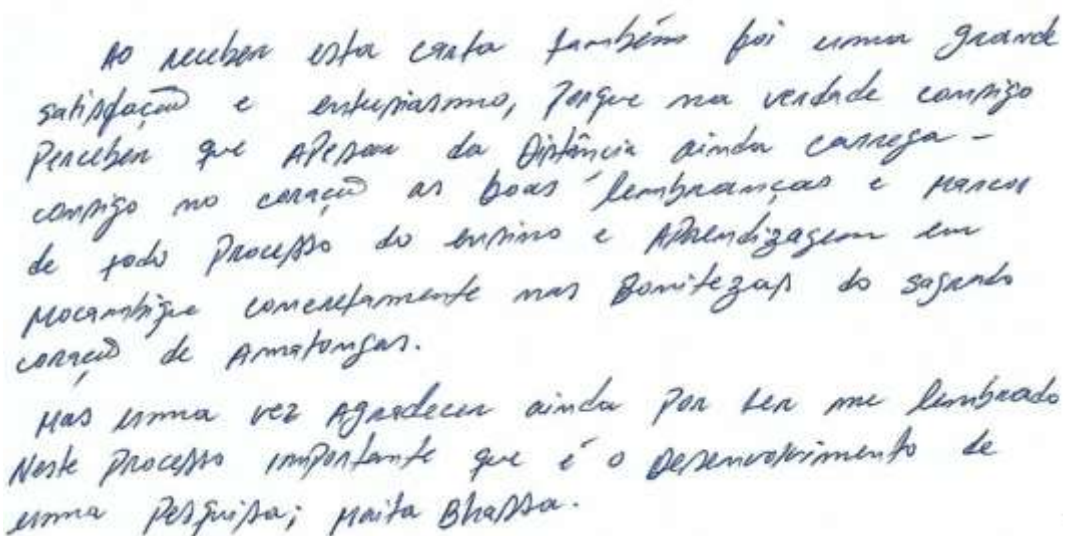 Ao receber esta carta também foi umma grande
satisfação e entusiasmo, Porque na verdade consigo
Perceber que APesar da Distância ainda carrega-
consigo no coração as boas lembranças e Marcos
de todo Processo do ensino e APrendizagem em
Mocambique concretamente nas Bonitezas do sagrado
coração de Amatongas.
Mas umma vez Agradecer ainda Por ter me lembrado
Neste Processo importante que é o Desenvolvimento de
umma Pesquisa; Maita Bhassa.